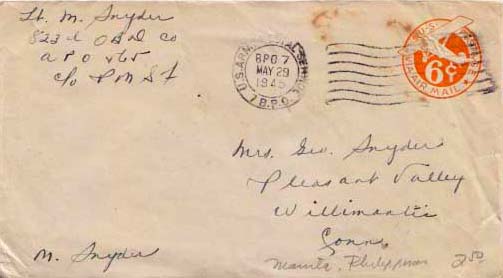 Lt. M. Snyder
823d Ord Co
APO 565
c/o P M S F
U.S. ARMY POSTAL SERVICE
B.P.O. 7
MAY 29
1945
7 B.P.O.
U.S.
6¢
VIA AIR MAIL
Mrs. Geo. Snyder
Pleasant Valley
Willimantic
Conn.
M. Snyder
Manila, Philippines 2.50